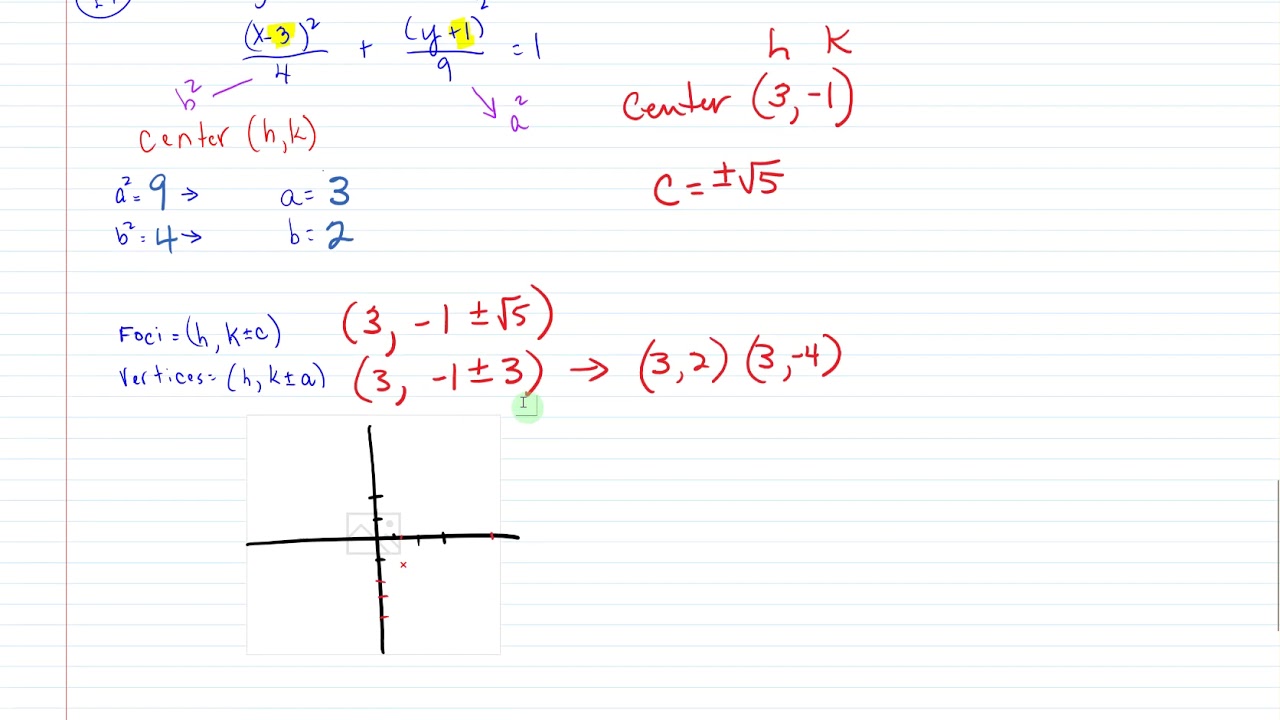 (x-3)²/4 + (y+1)²/9 = 1
b² a²
h k
center (h,k)
Center (3,-1)
a²= 9 → a= 3
C = ±√5
b²= 4 → b= 2
Foci = (h, k±c) (3, -1 ±√5)
Vertices= (h, k±a) (3, -1 ± 3) → (3,2) (3,-4)